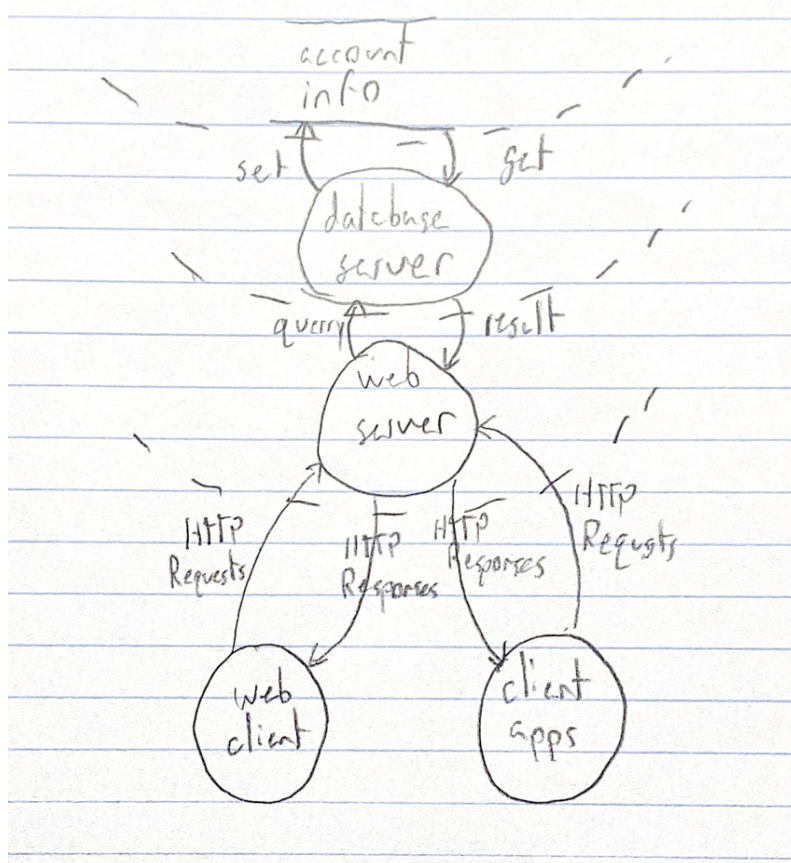 account
info
set
get
database
server
query
result
web
server
HTTP
Requests
HTTP
Responses
HTTP
Responses
HTTP
Requsts
web
client
client
apps